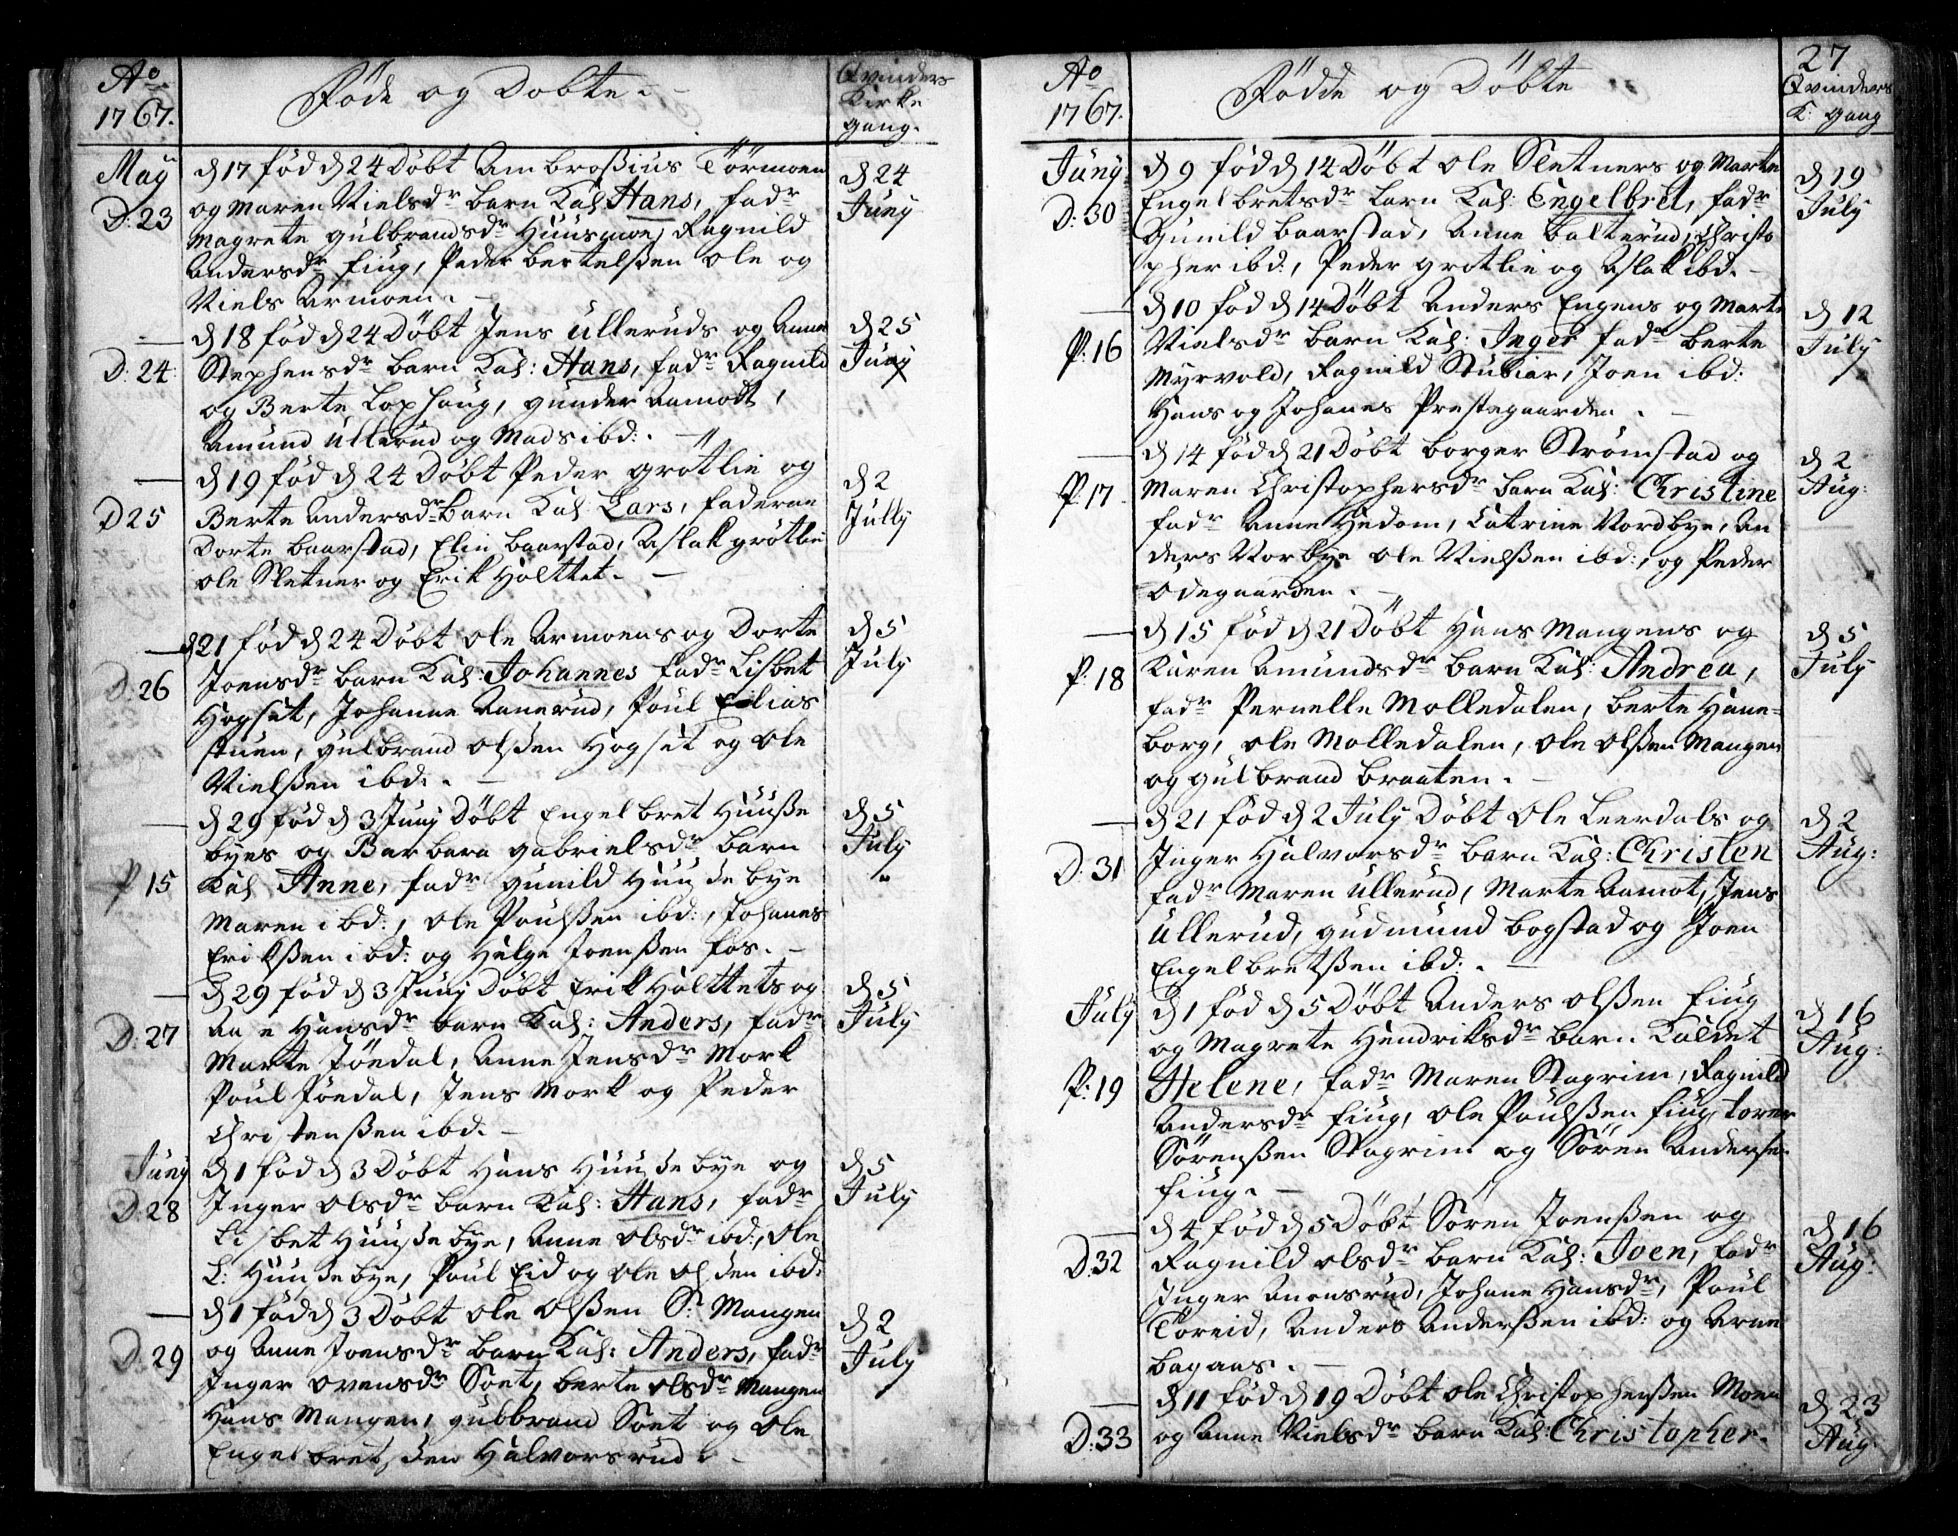 Aº
1767.
Føde og Døbte.
Qvinders
Kirke
gang.
May
D: 23
d 17 fød d 24 Døbt Ambrosius Törmoen
og Maren Nielsdr barn Kal: Hans, fadr
Magrete Gulbrandsdr Huusmoe, Ragnild
Andersdr fiug, Peder Bertelsen Ole og
Niels Armoen.
d 24
Juny
D: 24
d 18 fød d 24 Døbt Jens Ulleruds og Anne
Stephensdr barn Kal: Hans, fadr Ragnild
og Berte Lophaug, Gunder Aamodt,
Amund Ullerud og Mads ibd:.
d 25
Juny
D 25
d 19 fød d 24 Døbt Peder Grötlie og
Berte Andersdr barn Kal: Lars, faderne
Dorte Baarstad, Elin Baarstad, Aslak Grötlie
Ole Sletner og Erik Holttet.
d 2
July
D: 26
d 21 fød d 24 Døbt Ole Armoens og Dorte
Joensdr barn Kal: Johannes fadr Lisbet
Hogset, Johanne Aanerud, Poul Elias
stuen, Gulbrand Olssen Hogset og Ole
Nielssen ibd:.
d 5
July
P 15
d 29 fød d 3 Juny Døbt Engelbret Huusse
byes og Barbara Gabrielsdr barn
Kal Anne, fadr Gunild Huussebye
Maren ibd:, Ole Poulssen ibd:, Johanes
Erikssen ibd: og Helge Joenssen fos.
d 5
July
D: 27
d 29 fød d 3 Juny Døbt Erik Holttets og
Aa e Hansdr barn Kal: Anders, fadr
Marte Töedal, Anne Jensdr Mork
Poul Töedal, Jens Mork og Peder
Christenssen ibd.
d 5
July
Juny
D: 28
d 1 fød d 3 Døbt Hans Huussebye og
Inger Olsdr barn Kal: Hans, fadr
Lisbet Huussebye, Anne Olsdr ibd:, Ole
L: Huussebye, Poul Eid og Ole Olssen ibd:
d 5
July
D: 29
d 1 fød d 3 Døbt Ole Olssen Sr: Mangen
og Anne Joensdr barn Kal: Anders, fadr
Inger Ovensdr Soet, Berte Olsdr Mangen
Hans Mangen, Gubbrand Soet og Ole
Engelbretssen Halvorsrud.
d 2
July
Aº
1767.
Födde og Döbte
27
Qvinders
K: gang
Juny
D: 30
d 9 fød d 14 Døbt Ole Sletners og Marte
Engelbretsdr barn Kal: Engelbret, fadr
Gunild Baarstad, Anne Balterud, Christo
pher ibd:, Peder Grotlie og Aslak ibd.
d 19
July
P: 16
d 10 fød d 14 Døbt Anders Engens og Marte
Nielsdr barn Kal: Inger fadr Berte
Myrvold, Ragnild Stubiar, Joen ibd:
Hans og Johanes Prestegaarden.
d 12
July
P: 17
d 14 fød d 21 Døbt Borger Strømstad og
Maren Christophersdr barn Kal: Christine
fadr Anne Hedom, Catrine Nordbye, An
ders Norbye Ole Nielssen ibd:, og Peder
Odegaarden.
d 2
Aug:
P: 18
d 15 fød d 21 Døbt Hans Mangens og
Karen Amundsdr barn Kal: Andrea,
fadr Pernelle Molledalen, Berte Hane=
borg, Ole Molledalen, Ole Olssen Mangen
og Gulbrand Braaten.
d 5
July
D: 31
d 21 fød d 2 July Døbt Ole Leerdals og
Inger Halvorsdr barn Kal: Christen
fadr Maren Ullerud, Marte Aamot, Jens
Ullerud, Gudmund Bogstad og Joen
Engelbretssen ibd:.
d 2
Aug:
July
P: 19
d 1 fød d 5 Døbt Anders Olssen fiug
og Magrete Hendriksdr barn Kaldet
Helene, fadr Maren Stagrim, Ragnild
Andersdr fiug, Ole Poulssen fiug, Torer
Sörenssen Stagrim og Sören Anderse
fiug.
d 16
Aug:
D: 32
d 4 fød d 5 Døbt Sören Joenssen og
Ragnild Olsdr barn Kal: Joen, fadr
Inger Anonsrud, Johane Hansdr, Poul
Toreid, Anders Anderssen ibd: og Arne
Bagaas.
d 16
Aug:
D: 33
d 11 fød d 19 Døbt Ole Christophersen Moen
og Anne Nielsdr barn Kal: Christopher.
d 23
Aug